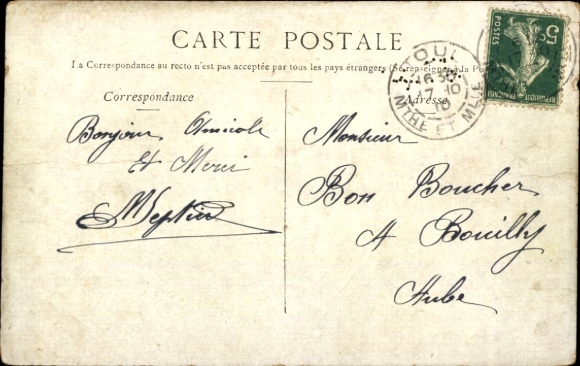 CARTE POSTALE
La Correspondance au recto n'est pas acceptée par tous les pays étrangers (Se renseigner à la Poste)
Correspondance
Adresse
Bonjour Amicale
Et Merci
Monsieur
Bon Boucher
A Bouilly
Aube
TOUL
16 30
17 - 10
10
MTHE ET MLLE
5c
POSTES
REPUBLIQUE FRANÇAISE